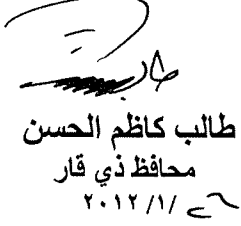 طالب كاظم الحسن
محافظ ذي قار
٢٠١٢/١/٢٦